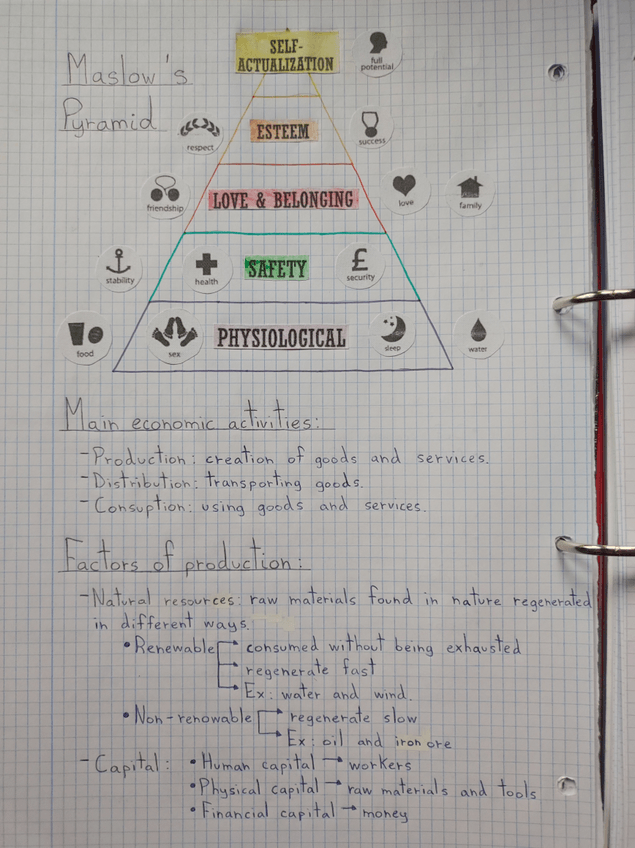 Maslow's
Pyramid
SELF-
ACTUALIZATION
full
potential
respect
ESTEEM
success
friendship
LOVE & BELONGING
love
family
stability
health
SAFETY
£
security
food
sex
PHYSIOLOGICAL
sleep
water
Main economic activities:
- Production: creation of goods and services.
- Distribution: transporting goods.
- Consuption: using goods and services.
Factors of production:
- Natural resources: raw materials found in nature regenerated
in different ways.
• Renewable → consumed without being exhausted
→ regenerate fast
→ Ex: water and wind.
• Non-renowable → regenerate slow
→ Ex: oil and iron ore
- Capital: • Human capital → workers
• Physical capital → raw materials and tools
• Financial capital → money